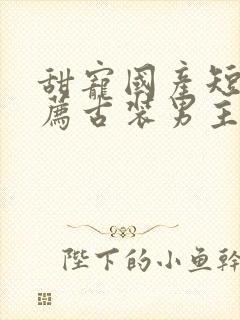 甜寵國產短
薦古裝男主
陛下的小鱼幹